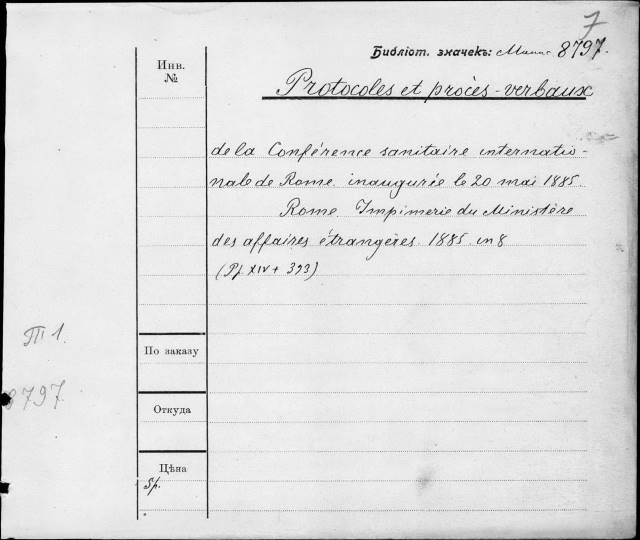 7
Библіот. значекъ: 8797.
Инв.
№
Protocoles et procès-verbaux
de la Conférence sanitaire internatio-
nale de Rome inaugurée le 20 mai 1885.
Rome. Impimerie du Ministère
des affaires étrangères. 1885. in 8
(Pp XIV + 393)
П 1.
По заказу
8797.
Откуда
Цѣна
5р.